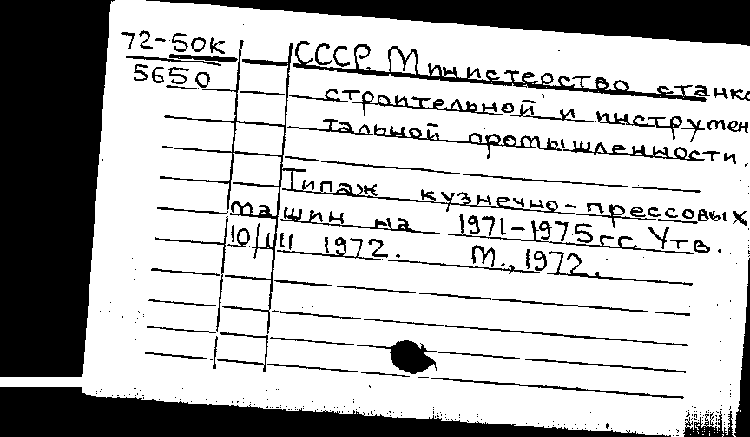 72-50к
5650
СССР. Министерство станко
строительной и инструмен
тальной промышленности.
Типаж кузнечно-прессовых
машин на 1971-1975гг. Утв.
10/III 1972. М., 1972.